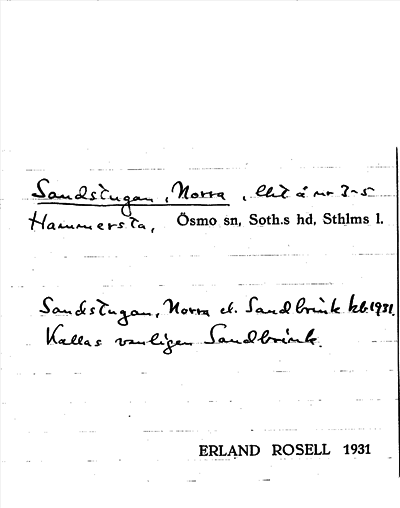 Sandstugan, Norra, lht å nr 3-5
Hammersta, Ösmo sn, Soth.s hd, Sthlms l.
Sandstugan, Norra el. Sandbrink kb. 1931.
Kallas vanligen Sandbrink.
ERLAND ROSELL 1931